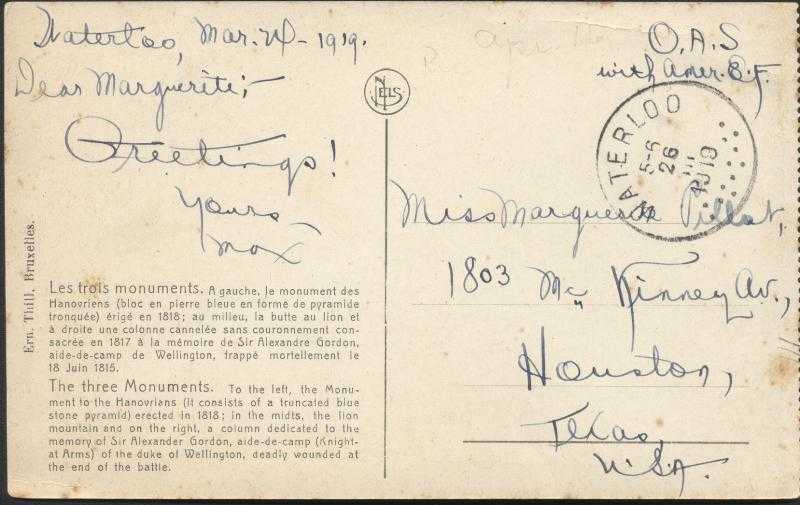 Waterloo, Mar. 24 - 1919.
Dear Marguerite;-
Greetings!
Yours
Max
NELS
Ern. Thill, Bruxelles.
Les trois monuments. A gauche, le monument des
Hanovriens (bloc en pierre bleue en forme de pyramide
tronquée) érigé en 1818; au milieu, la butte au lion et
à droite une colonne cannelée sans couronnement con-
sacrée en 1817 à la mémoire de Sir Alexandre Gordon,
aide-de-camp de Wellington, frappé mortellement le
18 Juin 1815.
The three Monuments. To the left, the Monu-
ment to the Hanovrians (it consists of a truncated blue
stone pyramid) erected in 1818; in the midts, the lion
mountain and on the right, a column dedicated to the
memory of Sir Alexander Gordon, aide-de-camp (Knight-
at Arms) of the duke of Wellington, deadly wounded at
the end of the battle.
O.A.S
with Amer. E.F.
WATERLOO
5-6
26
III
1919
Miss Marguerite
1803 Mc Kinney Av.,
Houston,
Texas,
U.S.A.